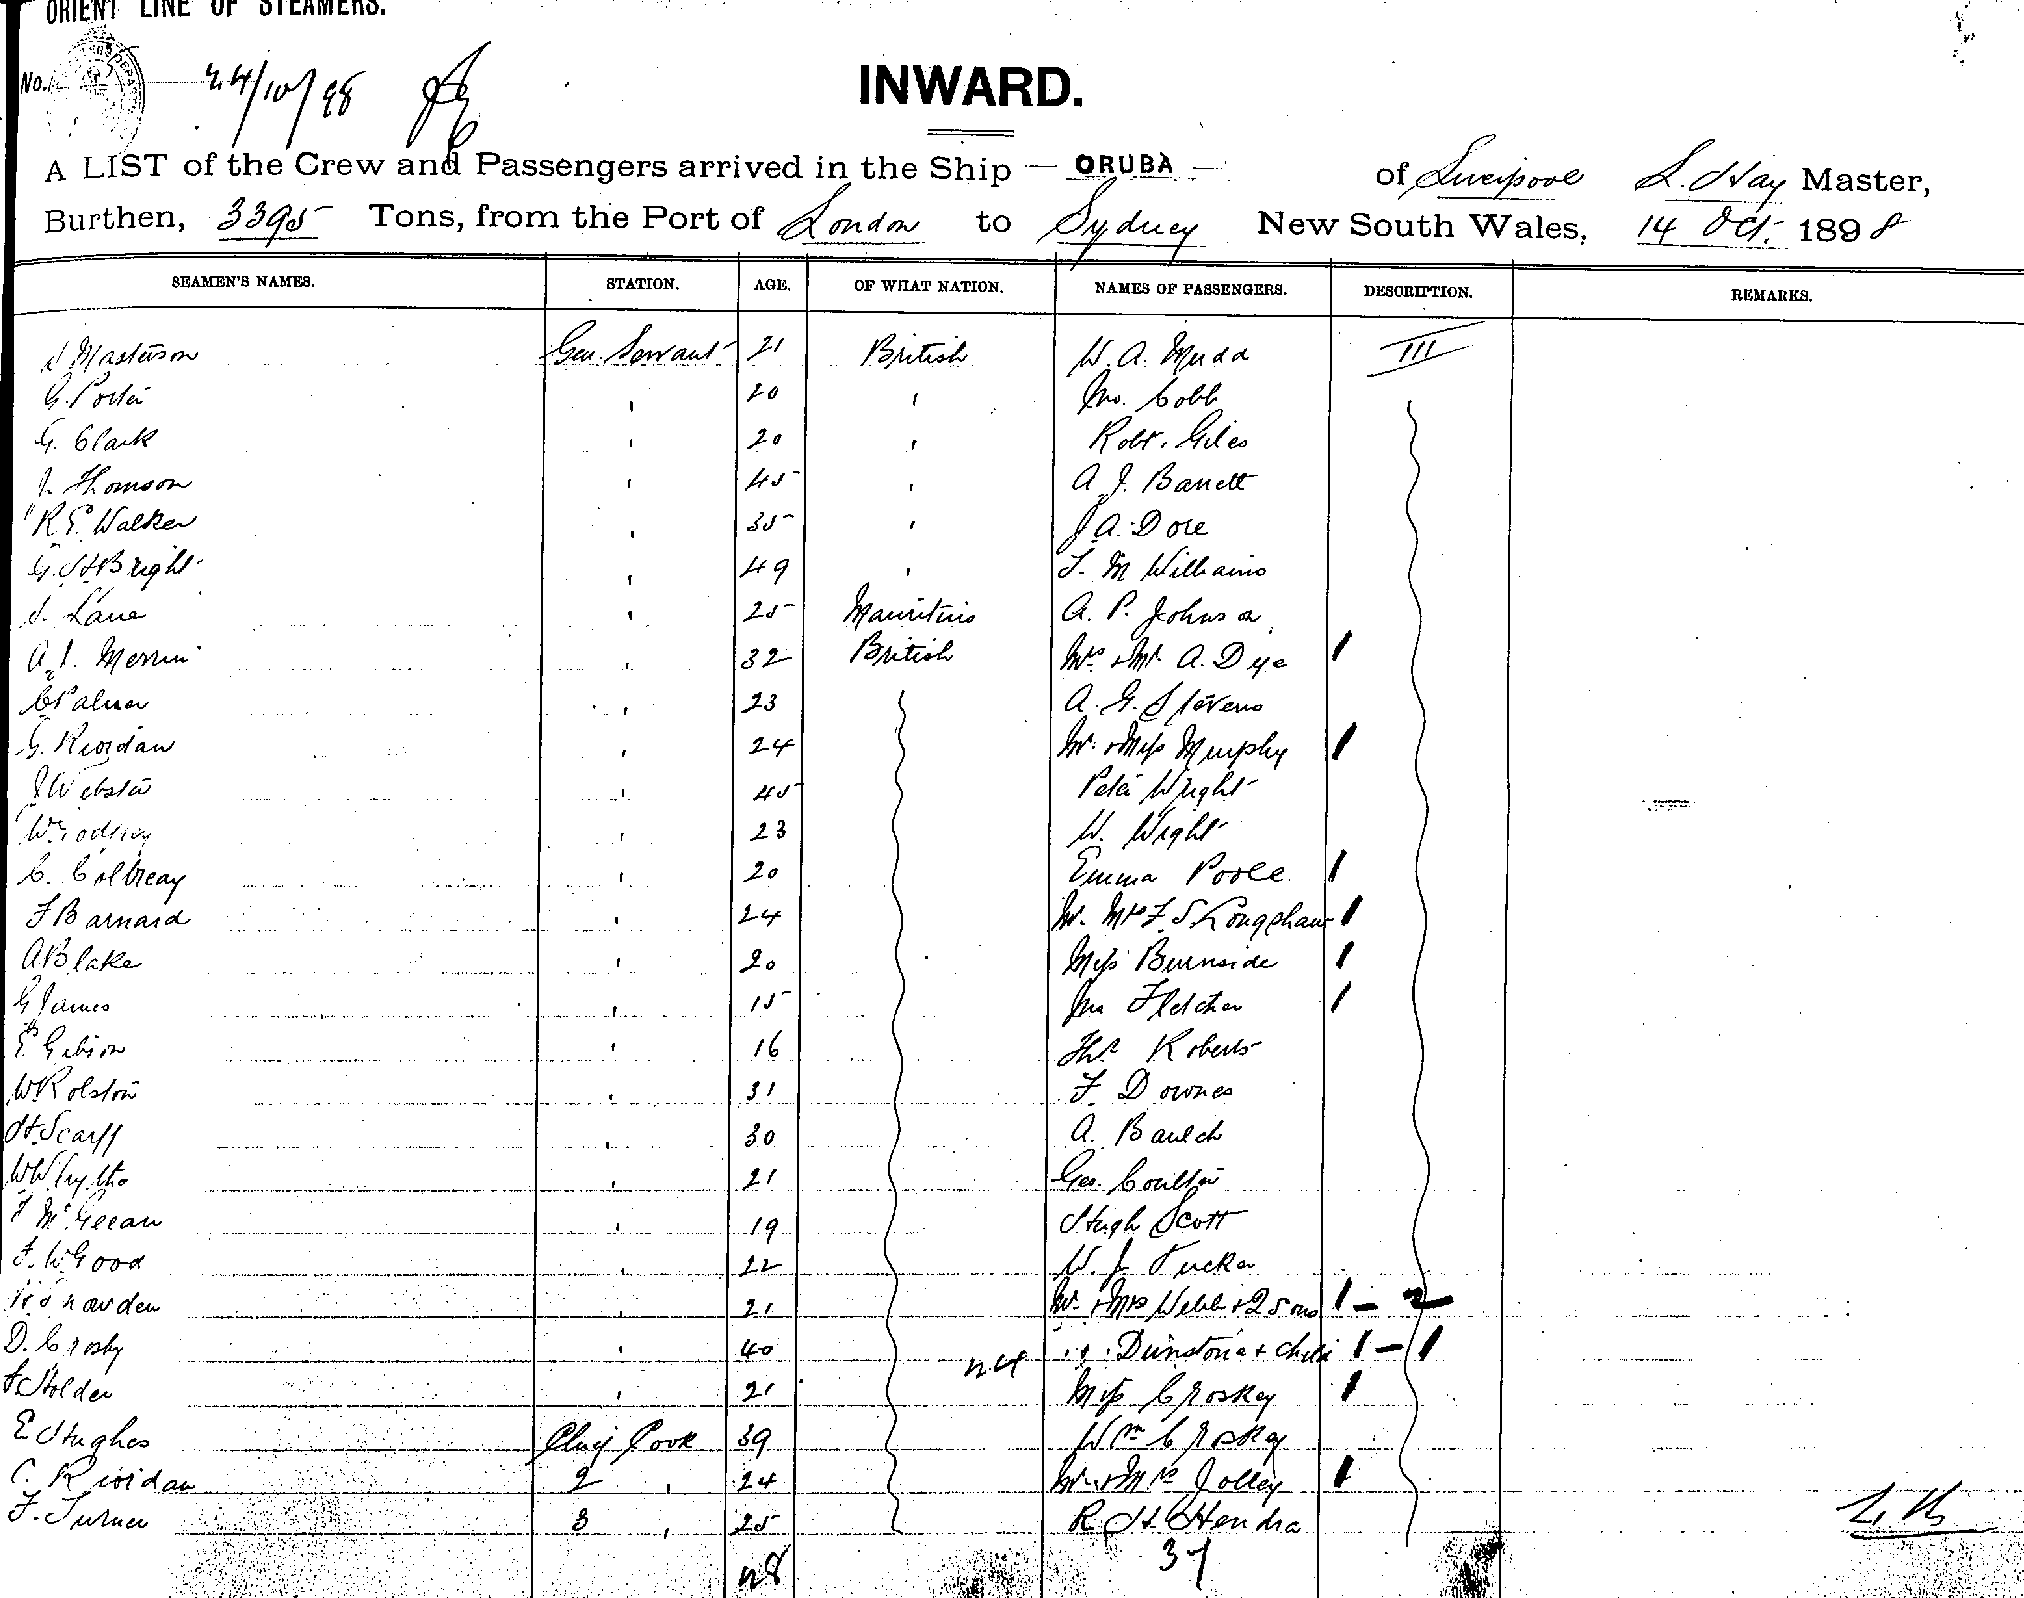 ORIENT LINE OF STEAMERS.
No. 24/10/98
INWARD.
A LIST of the Crew and Passengers arrived in the Ship — ORUBA — of Liverpool L. Hay Master,
Burthen, 3395 Tons, from the Port of London to Sydney New South Wales, 14 Oct. 1898
SEAMEN'S NAMES. STATION. AGE. OF WHAT NATION. NAMES OF PASSENGERS. DESCRIPTION. REMARKS.
Masterson Gen. Servant 21 British W. A. Mudd III
G. Porter " 20 " Jno. Cobb
G. Clark " 20 " Robt. Giles
J. Thomson " 45 " A J. Barrett
R E Walker " 35 " J A. Dore
G. H Bright " 49 " T. M Williams
J. Lane " 25 Mauritius A. P. Johnson
A. J. Merrin " 32 British Mrs & Mr. A. Dye 1
C Palmer " 23 A. G. Stevens
G. Riordan " 24 Mr. & Miss Murphy 1
J Webster " 45 Peter Wright
W 23 W. Wight
C. Colbreay " 20 Emma Poole 1
F Barnard " 24 Mr. Mrs F. S Longshaw 1
A Blake " 20 Miss Burnside 1
G James " 15 Fletcher 1
E. Gibson " 16 Thos Roberts
W Rolston " 31 F. Downes
H. Scarff " 30 A. Baulch
W 21 Geo. Coulter
F McGeean " 19 Hugh Scott
F. W Good " 22 W. J Tucker
21 Mr. & Mrs Webb & 2 sons 1 — 2
D. Crosby " 40 24 " " Dunstone & child 1 — 1
Holder " 21 Miss Croskey 1
E Hughes Chief Cook 39 Wm Croskey
C. Riordan 2 " 24 Mr. & Mrs Jolley 1
F. Turner 3 " 25 R H Hendra
28 37